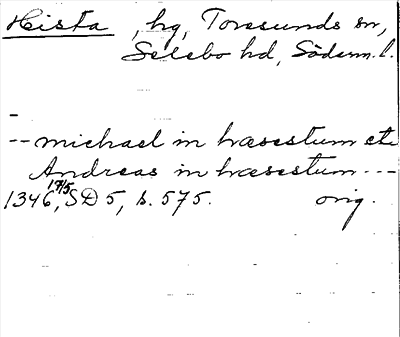 Hista , hg, Toresunds sn,
Selebo hd, Söderm. l.
-- michael in hæsestum etc
Andreas in hæsestum ---
1346 17/5, SD 5, s. 575. orig.